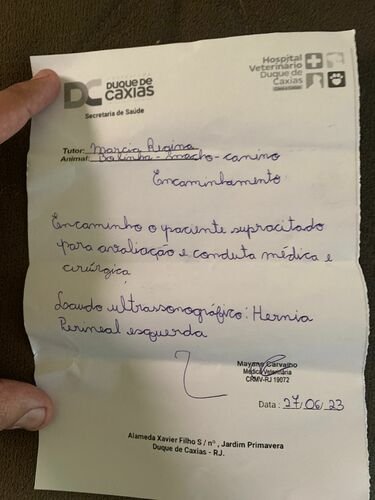 DC DUQUE DE
CAXIAS
Secretaria de Saúde
Hospital
Veterinário
Duque de
Caxias
Tutor: Marcia Regina
Animal: - macho - canino
Encaminhamento
Encaminho o paciente supracitado
para avaliação e conduta médica e
cirúrgica
Laudo ultrassonográfico: Hernia
Perineal esquerda
Mayane Carvalho
Médica Veterinária
CRMV-RJ 19072
Data: 27/06/23
Alameda Xavier Filho S / nº , Jardim Primavera
Duque de Caxias - RJ.